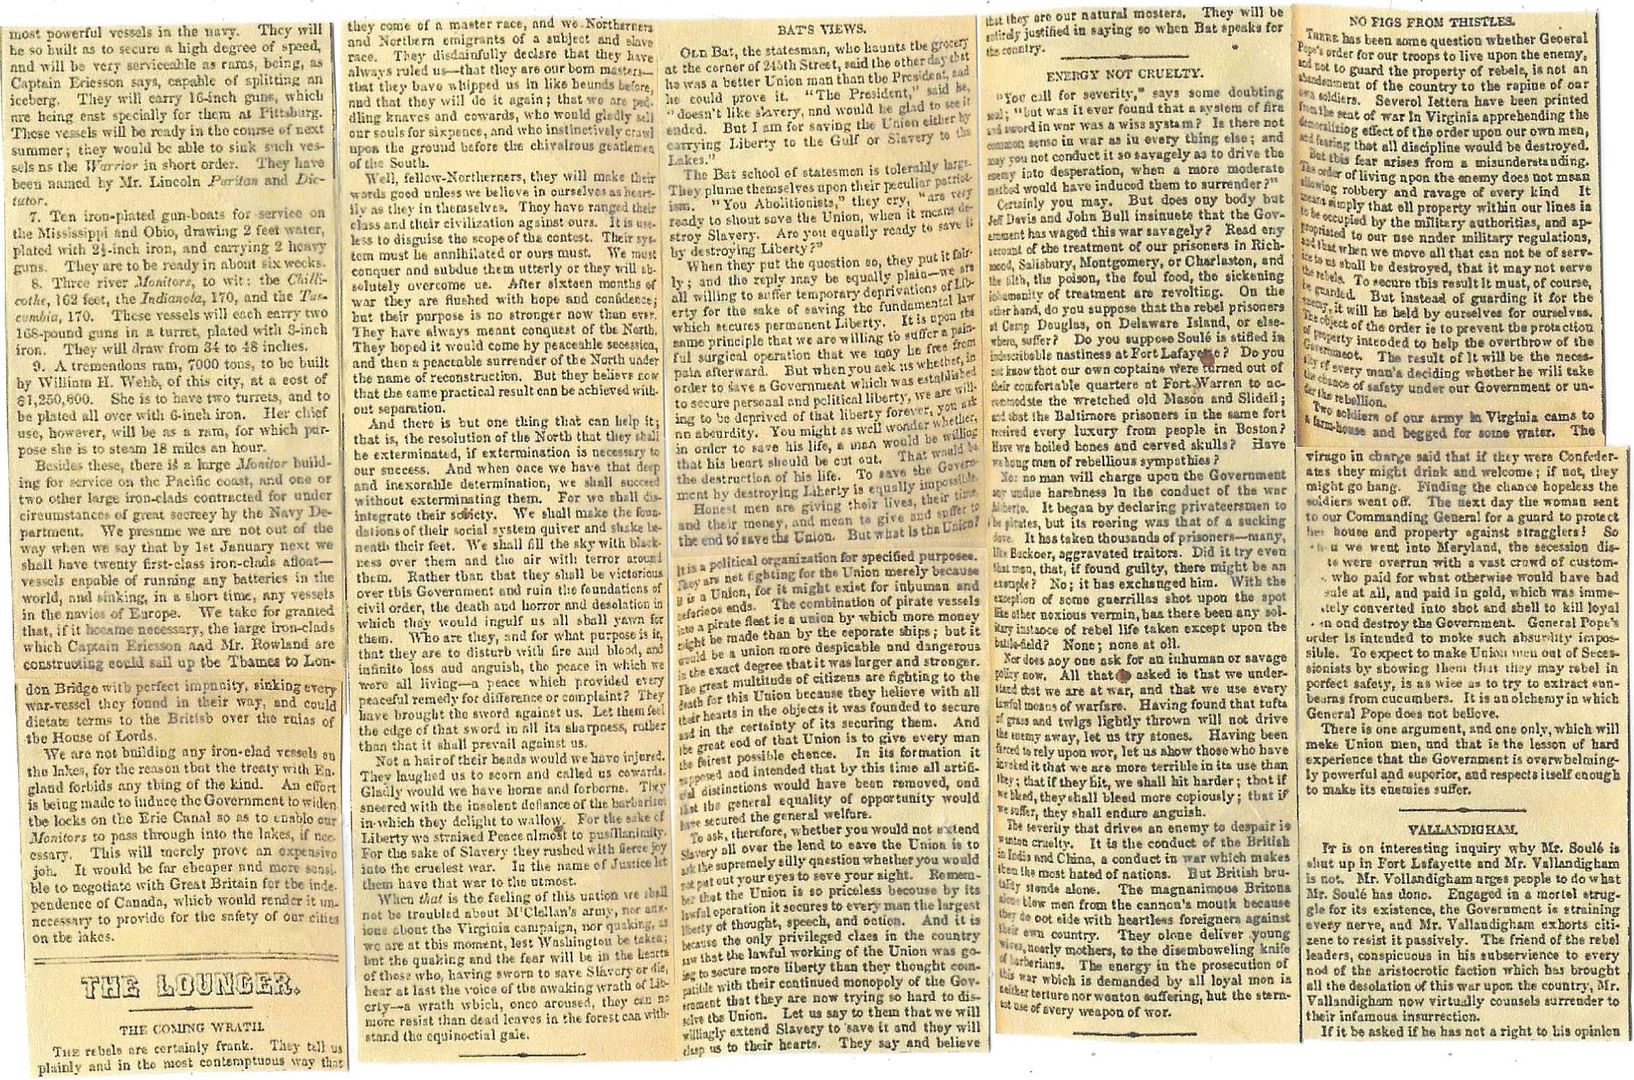 most powerful vessels in the navy. They will
be so built as to secure a high degree of speed,
and will be very serviceable as rams, being, as
Captain Ericsson says, capable of splitting an
iceberg. They will carry 16-inch guns, which
are being cast specially for them at Pittsburg.
These vessels will be ready in the course of next
summer; they would be able to sink such ves-
sels as the Warrior in short order. They have
been named by Mr. Lincoln Puritan and Dic-
tator.
7. Ten iron-plated gun-boats for service on
the Mississippi and Ohio, drawing 2 feet water,
plated with 2½-inch iron, and carrying 2 heavy
guns. They are to be ready in about six weeks.
8. Three river Monitors, to wit: the Chilli-
cothe, 162 feet, the Indianola, 170, and the Tus-
cumbia, 170. These vessels will each carry two
168-pound guns in a turret, plated with 3-inch
iron. They will draw from 34 to 48 inches.
9. A tremendous ram, 7000 tons, to be built
by William H. Webb, of this city, at a cost of
$1,250,000. She is to have two turrets, and to
be plated all over with 6-inch iron. Her chief
use, however, will be as a ram, for which pur-
pose she is to steam 18 miles an hour.
Besides these, there is a large Monitor build-
ing for service on the Pacific coast, and one or
two other large iron-clads contracted for under
circumstances of great secrecy by the Navy De-
partment. We presume we are not out of the
way when we say that by 1st January next we
shall have twenty first-class iron-clads afloat—
vessels capable of running any batteries in the
world, and sinking, in a short time, any vessels
in the navies of Europe. We take for granted
that, if it became necessary, the large iron-clads
which Captain Ericsson and Mr. Rowland are
constructing could sail up the Thames to Lon-
don Bridge with perfect impunity, sinking every
war-vessel they found in their way, and could
dictate terms to the British over the ruins of
the House of Lords.
We are not building any iron-clad vessels on
the lakes, for the reason that the treaty with En-
gland forbids any thing of the kind. An effort
is being made to induce the Government to widen
the locks on the Erie Canal so as to enable our
Monitors to pass through into the lakes, if nec-
essary. This will merely prove an expensive
job. It would be far cheaper and more sensi-
ble to negotiate with Great Britain for the inde-
pendence of Canada, which would render it un-
necessary to provide for the safety of our cities
on the lakes.
THE LOUNGER.
THE COMING WRATH.
THE rebels are certainly frank. They tell us
plainly and in the most contemptuous way that
they come of a master race, and we Northerners
and Northern emigrants of a subject and slave
race. They disdainfully declare that they have
always ruled us—that they are our born masters—
that they have whipped us in like hounds before,
and that they will do it again; that we are ped-
dling knaves and cowards, who would gladly sell
our souls for sixpence, and who instinctively crawl
upon the ground before the chivalrous gentlemen
of the South.
Well, fellow-Northerners, they will make their
words good unless we believe in ourselves as heart-
ily as they in themselves. They have ranged their
class and their civilization against ours. It is use-
less to disguise the scope of the contest. Their sys-
tem must be annihilated or ours must. We must
conquer and subdue them utterly or they will ab-
solutely overcome us. After sixteen months of
war they are flushed with hope and confidence;
but their purpose is no stronger now than ever.
They have always meant conquest of the North.
They hoped it would come by peaceable secession,
and then a peaceable surrender of the North under
the name of reconstruction. But they believe now
that the same practical result can be achieved with-
out separation.
And there is but one thing that can help it;
that is, the resolution of the North that they shall
be exterminated, if extermination is necessary to
our success. And when once we have that deep
and inexorable determination, we shall succeed
without exterminating them. For we shall dis-
integrate their society. We shall make the foun-
dations of their social system quiver and shake be-
neath their feet. We shall fill the sky with black-
ness over them and the air with terror around
them. Rather than that they shall be victorious
over this Government and ruin the foundations of
civil order, the death and horror and desolation in
which they would ingulf us all shall yawn for
them. Who are they, and for what purpose is it,
that they are to disturb with fire and blood, and
infinite loss and anguish, the peace in which we
were all living—a peace which provided every
peaceful remedy for difference or complaint? They
have brought the sword against us. Let them feel
the edge of that sword in all its sharpness, rather
than that it shall prevail against us.
Not a hair of their heads would we have injured.
They laughed us to scorn and called us cowards.
Gladly would we have borne and forborne. They
sneered with the insolent defiance of the barbarism
in which they delight to wallow. For the sake of
Liberty we strained Peace almost to pusillanimity.
For the sake of Slavery they rushed with fierce joy
into the cruelest war. In the name of Justice let
them have that war to the utmost.
When that is the feeling of this nation we shall
not be troubled about M'Clellan's army, nor anx-
ious about the Virginia campaign, nor quaking, as
we are at this moment, lest Washington be taken;
but the quaking and the fear will be in the hearts
of those who, having sworn to save Slavery or die,
hear at last the voice of the awaking wrath of Lib-
erty—a wrath which, once aroused, they can no
more resist than dead leaves in the forest can with-
stand the equinoctial gale.
BAT'S VIEWS.
OLD Bat, the statesman, who haunts the grocery
at the corner of 245th Street, said the other day that
he was a better Union man than the President, and
he could prove it. "The President," said he,
"doesn't like slavery, and would be glad to see it
ended. But I am for saving the Union either by
carrying Liberty to the Gulf or Slavery to the
Lakes."
The Bat school of statesmen is tolerably large.
They plume themselves upon their peculiar patriot-
ism. "You Abolitionists," they cry, "are very
ready to shout save the Union, when it means de-
stroy Slavery. Are you equally ready to save it
by destroying Liberty?"
When they put the question so, they put it fair-
ly; and the reply may be equally plain—we are
all willing to suffer temporary deprivations of Lib-
erty for the sake of saving the fundamental law
which secures permanent Liberty. It is upon the
same principle that we are willing to suffer a pain-
ful surgical operation that we may be free from
pain afterward. But when you ask us whether, in
order to save a Government which was established
to secure personal and political liberty, we are will-
ing to be deprived of that liberty forever, you ask
an absurdity. You might as well wonder whether,
in order to save his life, a man would be willing
that his heart should be cut out. That would be
the destruction of his life. To save the Govern-
ment by destroying Liberty is equally impossible.
Honest men are giving their lives, their time,
and their money, and mean to give and suffer to
the end to save the Union. But what is the Union?
It is a political organization for specified purposes.
They are not fighting for the Union merely because
it is a Union, for it might exist for inhuman and
nefarious ends. The combination of pirate vessels
into a pirate fleet is a union by which more money
might be made than by the separate ships; but it
would be a union more despicable and dangerous
in the exact degree that it was larger and stronger.
The great multitude of citizens are fighting to the
death for this Union because they believe with all
their hearts in the objects it was founded to secure
and in the certainty of its securing them. And
the great end of that Union is to give every man
the fairest possible chance. In its formation it
supposed and intended that by this time all artifi-
cial distinctions would have been removed, and
that the general equality of opportunity would
have secured the general welfare.
To ask, therefore, whether you would not extend
Slavery all over the land to save the Union is to
ask the supremely silly question whether you would
not put out your eyes to save your sight. Remem-
ber that the Union is so priceless because by its
lawful operation it secures to every man the largest
liberty of thought, speech, and action. And it is
because the only privileged class in the country
saw that the lawful working of the Union was go-
ing to secure more liberty than they thought com-
patible with their continued monopoly of the Gov-
ernment that they are now trying so hard to dis-
solve the Union. Let us say to them that we will
willingly extend Slavery to save it and they will
clasp us to their hearts. They say and believe
that they are our natural masters. They will be
entirely justified in saying so when Bat speaks for
the country.
ENERGY NOT CRUELTY.
"You call for severity," says some doubting
soul; "but was it ever found that a system of fire
and sword in war was a wise system? Is there not
common sense in war as in every thing else; and
may you not conduct it so savagely as to drive the
enemy into desperation, when a more moderate
method would have induced them to surrender?"
Certainly you may. But does any body but
Jeff Davis and John Bull insinuate that the Gov-
ernment has waged this war savagely? Read any
account of the treatment of our prisoners in Rich-
mond, Salisbury, Montgomery, or Charleston, and
the filth, the poison, the foul food, the sickening
inhumanity of treatment are revolting. On the
other hand, do you suppose that the rebel prisoners
at Camp Douglas, on Delaware Island, or else-
where, suffer? Do you suppose Soulé is stifled in
indescribable nastiness at Fort Lafayette? Do you
not know that our own captains were turned out of
their comfortable quarters at Fort Warren to ac-
commodate the wretched old Mason and Slidell;
and that the Baltimore prisoners in the same fort
received every luxury from people in Boston?
Have we boiled bones and carved skulls? Have
we hung men of rebellious sympathies?
No: no man will charge upon the Government
any undue harshness in the conduct of the war
hitherto. It began by declaring privateersmen to
be pirates, but its roaring was that of a sucking
dove. It has taken thousands of prisoners—many,
like Buckner, aggravated traitors. Did it try even
that man, that, if found guilty, there might be an
example? No; it has exchanged him. With the
exception of some guerrillas shot upon the spot
like other noxious vermin, has there been any sol-
itary instance of rebel life taken except upon the
battle-field? None; none at all.
Nor does any one ask for an inhuman or savage
policy now. All that is asked is that we under-
stand that we are at war, and that we use every
lawful means of warfare. Having found that tufts
of grass and twigs lightly thrown will not drive
the enemy away, let us try stones. Having been
forced to rely upon war, let us show those who have
invoked it that we are more terrible in its use than
they; that if they hit, we shall hit harder; that if
we bleed, they shall bleed more copiously; that if
we suffer, they shall endure anguish.
The severity that drives an enemy to despair is
wanton cruelty. It is the conduct of the British
in India and China, a conduct in war which makes
them the most hated of nations. But British bru-
tality stands alone. The magnanimous Britons
alone blow men from the cannon's mouth because
they do not side with heartless foreigners against
their own country. They alone deliver young
wives, nearly mothers, to the disemboweling knife
of barbarians. The energy in the prosecution of
this war which is demanded by all loyal men is
neither torture nor wanton suffering, but the stern-
est use of every weapon of war.
NO FIGS FROM THISTLES.
THERE has been some question whether General
Pope's order for our troops to live upon the enemy,
and not to guard the property of rebels, is not an
abandonment of the country to the rapine of our
own soldiers. Several letters have been printed
from the seat of war in Virginia apprehending the
demoralizing effect of the order upon our own men,
and fearing that all discipline would be destroyed.
But this fear arises from a misunderstanding.
The order of living upon the enemy does not mean
allowing robbery and ravage of every kind It
means simply that all property within our lines is
to be occupied by the military authorities, and ap-
propriated to our use under military regulations,
and that when we move all that can not be of serv-
ice to us shall be destroyed, that it may not serve
the rebels. To secure this result it must, of course,
be guarded. But instead of guarding it for the
enemy, it will be held by ourselves for ourselves.
The object of the order is to prevent the protection
of property intended to help the overthrow of the
Government. The result of it will be the neces-
sity of every man's deciding whether he will take
the chance of safety under our Government or un-
der the rebellion.
Two soldiers of our army in Virginia came to
a farm-house and begged for some water. The
virago in charge said that if they were Confeder-
ates they might drink and welcome; if not, they
might go hang. Finding the chance hopeless the
soldiers went off. The next day the woman sent
to our Commanding General for a guard to protect
her house and property against stragglers! So
when we went into Maryland, the secession dis-
were overrun with a vast crowd of custom-
who paid for what otherwise would have had
sale at all, and paid in gold, which was imme-
ately converted into shot and shell to kill loyal
and destroy the Government. General Pope's
order is intended to make such absurdity impos-
sible. To expect to make Union men out of Seces-
sionists by showing them that they may rebel in
perfect safety, is as wise as to try to extract sun-
beams from cucumbers. It is an alchemy in which
General Pope does not believe.
There is one argument, and one only, which will
make Union men, and that is the lesson of hard
experience that the Government is overwhelming-
ly powerful and superior, and respects itself enough
to make its enemies suffer.
VALLANDIGHAM.
IT is an interesting inquiry why Mr. Soulé is
shut up in Fort Lafayette and Mr. Vallandigham
is not. Mr. Vollandigham urges people to do what
Mr. Soulé has done. Engaged in a mortal strug-
gle for its existence, the Government is straining
every nerve, and Mr. Vallandigham exhorts citi-
zens to resist it passively. The friend of the rebel
leaders, conspicuous in his subservience to every
nod of the aristocratic faction which has brought
all the desolation of this war upon the country, Mr.
Vallandigham now virtually counsels surrender to
their infamous insurrection.
If it be asked if he has not a right to his opinion